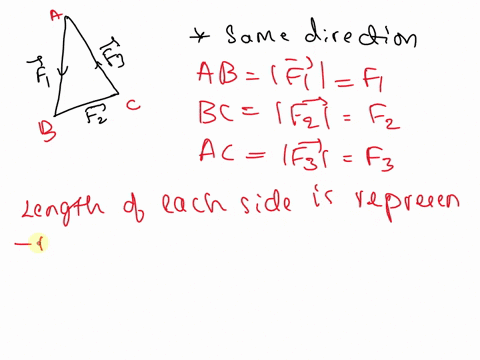 A
F₁
F₃
B
F₂
C
* Same direction
AB = |F₁| = F₁
BC = |F₂| = F₂
AC = |F₃| = F₃
Length of each side is represen